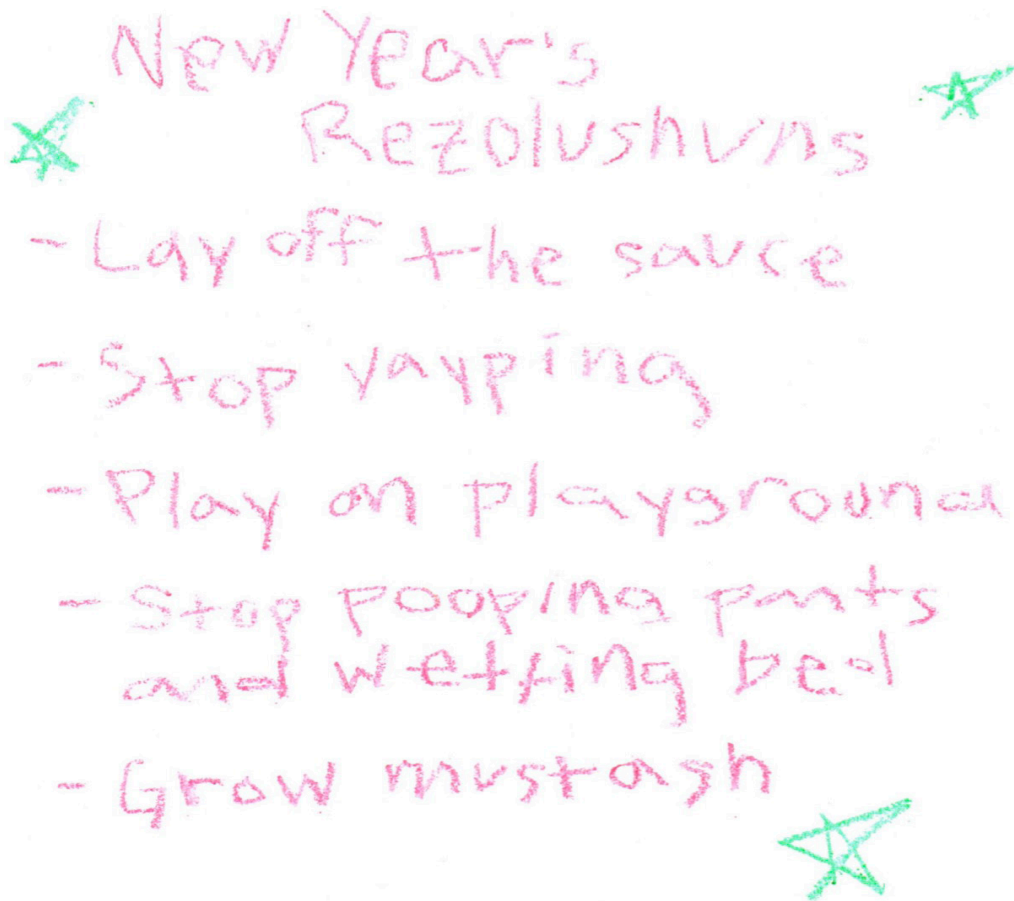 New Year's
Rezolushuns
- Lay off the sauce
- Stop vayping
- Play on playground
- Stop pooping pants
and wetting bed
- Grow mustash